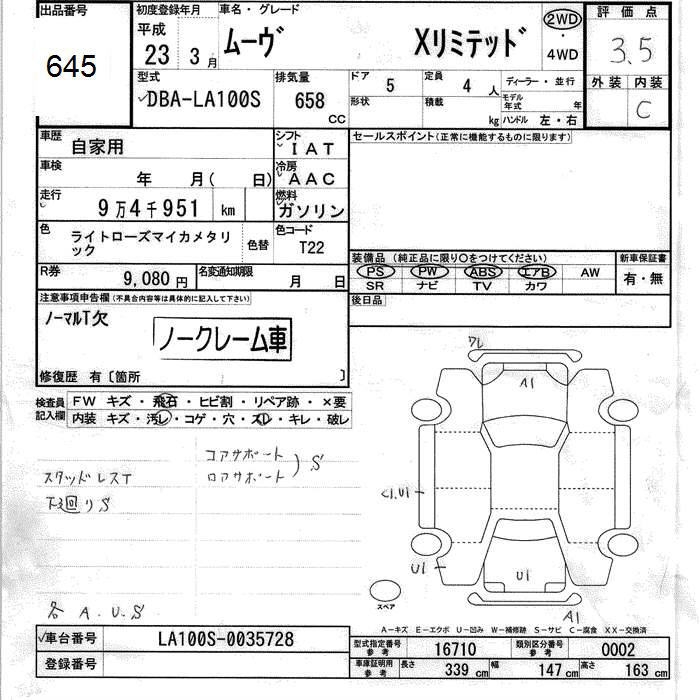 出品番号
645
初度登録年月
平成
23 3月
車名・グレード
ムーヴ Xリミテッド
2WD
・
4WD
評価点
3.5
外装 内装
C
型式
DBA-LA100S
排気量
658
CC
ドア 5
定員 4 人
形状
積載 kg
ディーラー・並行
モデル年式 年
ハンドル 左・右
車歴
自家用
シフト
IAT
車検
年 月( 日)
冷房
AAC
走行
9万4千951 km
燃料
ガソリン
色
ライトローズマイカメタリック
色替
色コード
T22
R券
9,080円
名変通知期限
月 日
セールスポイント(正常に機能するものに限ります)
装備品(純正品に限り○をつけてください)
PS PW ABS エアB AW
SR ナビ TV カワ
新車保証書
有・無
後日品
注意事項申告欄(不具合内容等は具体的に記入して下さい)
ノーマルT欠
ノークレーム車
修復歴 有〔箇所 〕
検査員記入欄
FW キズ・飛石・ヒビ割・リペア跡・×要
内装 キズ・汚レ・コゲ・穴・スレ・キレ・破レ
コアサポート
ロアサポート
) S
スタッドレスT
下廻りS
各 A.U.S
ワレ
A1
U1
U1
A1
スペア
A―キズ E―エクボ U―凹み W―補修跡 S―サビ C―腐食 XX―交換済
車台番号
LA100S-0035728
登録番号
型式指定番号
参考
16710
類別区分番号
参考
0002
車庫証明用
参考
長さ 339 cm
幅 147 cm
高さ 163 cm